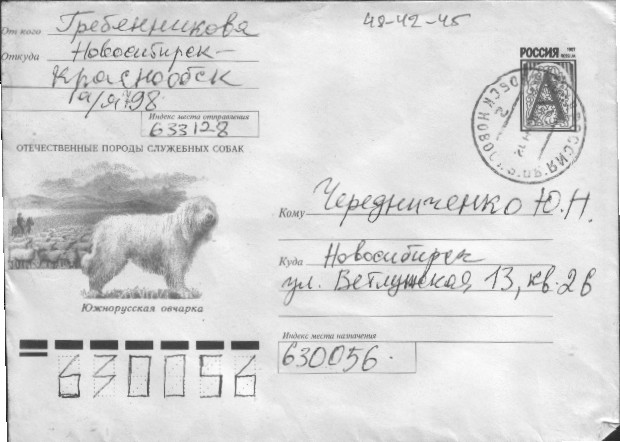 48-42-45
От кого Гребенникова
Откуда Новосибирск-
Краснообск
а/я 98
Индекс места отправления
633128
ОТЕЧЕСТВЕННЫЕ ПОРОДЫ СЛУЖЕБНЫХ СОБАК
Южнорусская овчарка
РОССИЯ
А
РОССИЯ
Кому Чередниченко Ю.Н.
Куда Новосибирск
ул. Ветлужская, 13, кв. 26
Индекс места назначения
630056
630056